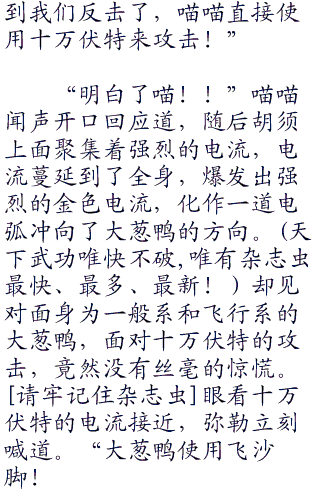 到我们反击了，喵喵直接使
用十万伏特来攻击！”
“明白了喵！！”喵喵
闻声开口回应道，随后胡须
上面聚集着强烈的电流，电
流蔓延到了全身，爆发出强
烈的金色电流，化作一道电
弧冲向了大葱鸭的方向。(天
下武功唯快不破,唯有杂志虫
最快、最多、最新！)却见
对面身为一般系和飞行系的
大葱鸭，面对十万伏特的攻
击，竟然没有丝毫的惊慌。
[请牢记住杂志虫]眼看十万
伏特的电流接近，弥勒立刻
喊道。“大葱鸭使用飞沙
脚！